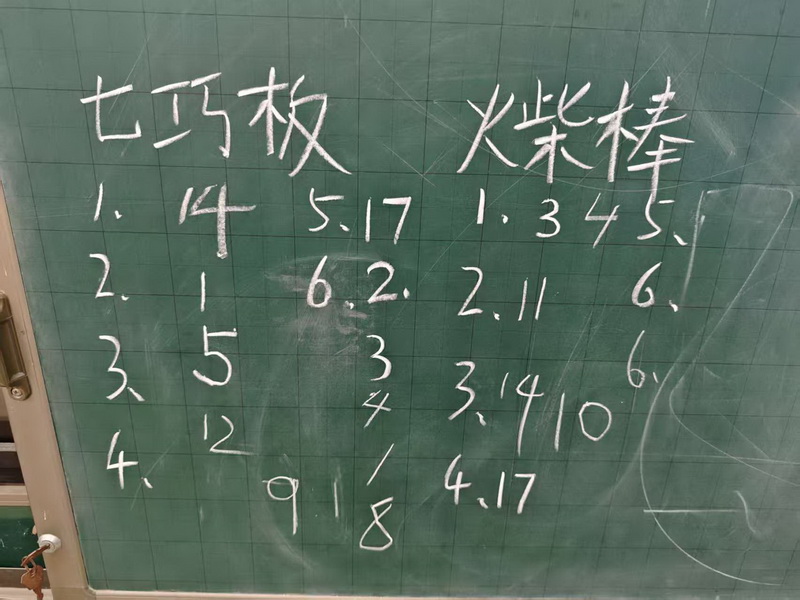 七巧板 火柴棒
1. 14 5、17 1. 3 4 5、
2. 1 6.2. 2.11 6、
3、 5 3 6、
4 3、14 10
4、 12
1 4、17
9 1 8